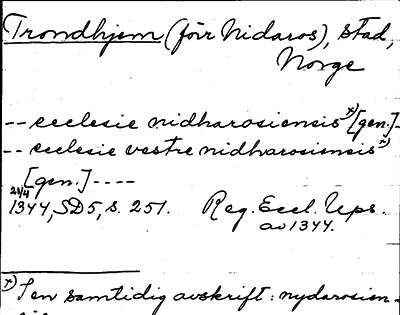 Trondhjem (förr Nidaros), stad,
Norge
-- ecclesie nidharosiensis x) [gen.]-
-- ecclesie vestre nidharosiensis x)
[gen.] ----
21/4
1344, SD5, s. 251. Reg. Eccl. Ups.
av 1344.
x) I en samtidig avskrift: nydarosien-